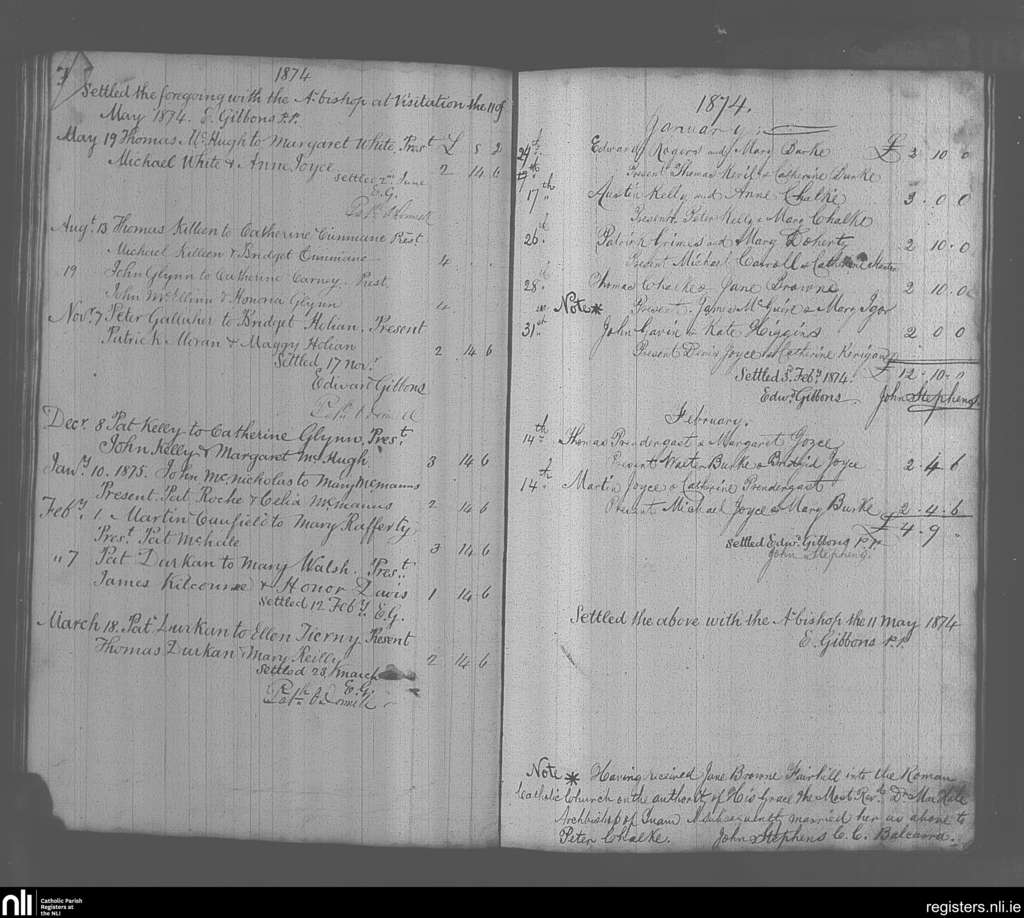 7
1874
Settled the foregoing with the A.bishop at Visitation the 11 of
May 1874. E. Gibbons P.P.
May 19 Thomas McHugh to Margaret White, Prest £ s 2
Michael White & Anne Joyce 2 14 6
settled 2nd June
E.G.
Augt 13 Thomas Killeen to Catherine Cunnane Prest
Michael Killeen & Bridget Cunnane 4 . .
19 John Glynn to Catherine Carney, Prest
John McEllinn & Honoria Glynn 4
Novr 7 Peter Gallaher to Bridget Holian. Present
Patrick Moran & Maggy Holian 2 14 6
Settled 17 Novr
Edward Gibbons
Decr. 8 Pat Kelly to Catherine Glynn, Prest
John Kelly & Margaret McHugh 3 14 6
Jany 10. 1875. John McNicholas to Mary McManus
Present Pat Roche & Celia McManus 2 14 6
Feby 1 Martin Caufield to Mary Rafferty
Prest Pat McHale 3 14 6
" 7 Pat Durkan to Mary Walsh. Prest
James Kilcourse & Honor Davis 1 14 6
Settled 12 Feby E.G.
March 18. Pat Durkan to Ellen Tierny Present
Thomas Durkan & Mary Reilly 2 14 6
Settled 23 March
E.G.
1874.
January
Edward Rogers and Mary Burke £ 2 10 0
Present Thomas & Catherine Burke
17th Austin Kelly and Anne Chalke 3 . 0 0
Present Peter Kelly & Mary Chalke
26 Patrick Grimes and Mary Doherty 2 10 . 0
Present Michael Carroll & Catherine
28 Thomas Chalke & Jane Browne 2 10 . 0
Note * Present James McGuire & Mary Igo
31st John Gavin & Kate Higgins 2 0 0
Present Denis Joyce & Catherine Kerigan
Settled 5 Feby 1874. £ 12 . 10 . 0
Edwd Gibbons John Stephens
February.
14th Thomas Prendergast & Margaret Joyce
Present Walter Burke & Bridgid Joyce 2 . 4 6
14th Martin Joyce & Catherine Prendergast
Present Michael Joyce & Mary Burke 2 . 4 . 6
£ 4 . 9 "
Settled Edwd Gibbons P.P.
John Stephens.
Settled the above with the A.bishop the 11 May 1874
E. Gibbons P.P.
Note * Having received Jane Browne Fairhill into the Roman
Catholic Church on the authority of His Grace the Most Revd Dr MacHale
Archbishop of Tuam I subsequently married her as above to
Peter Chalke. John Stephens C.C. Balcarra.
nli
Catholic Parish
Registers at
the NLI
registers.nli.ie